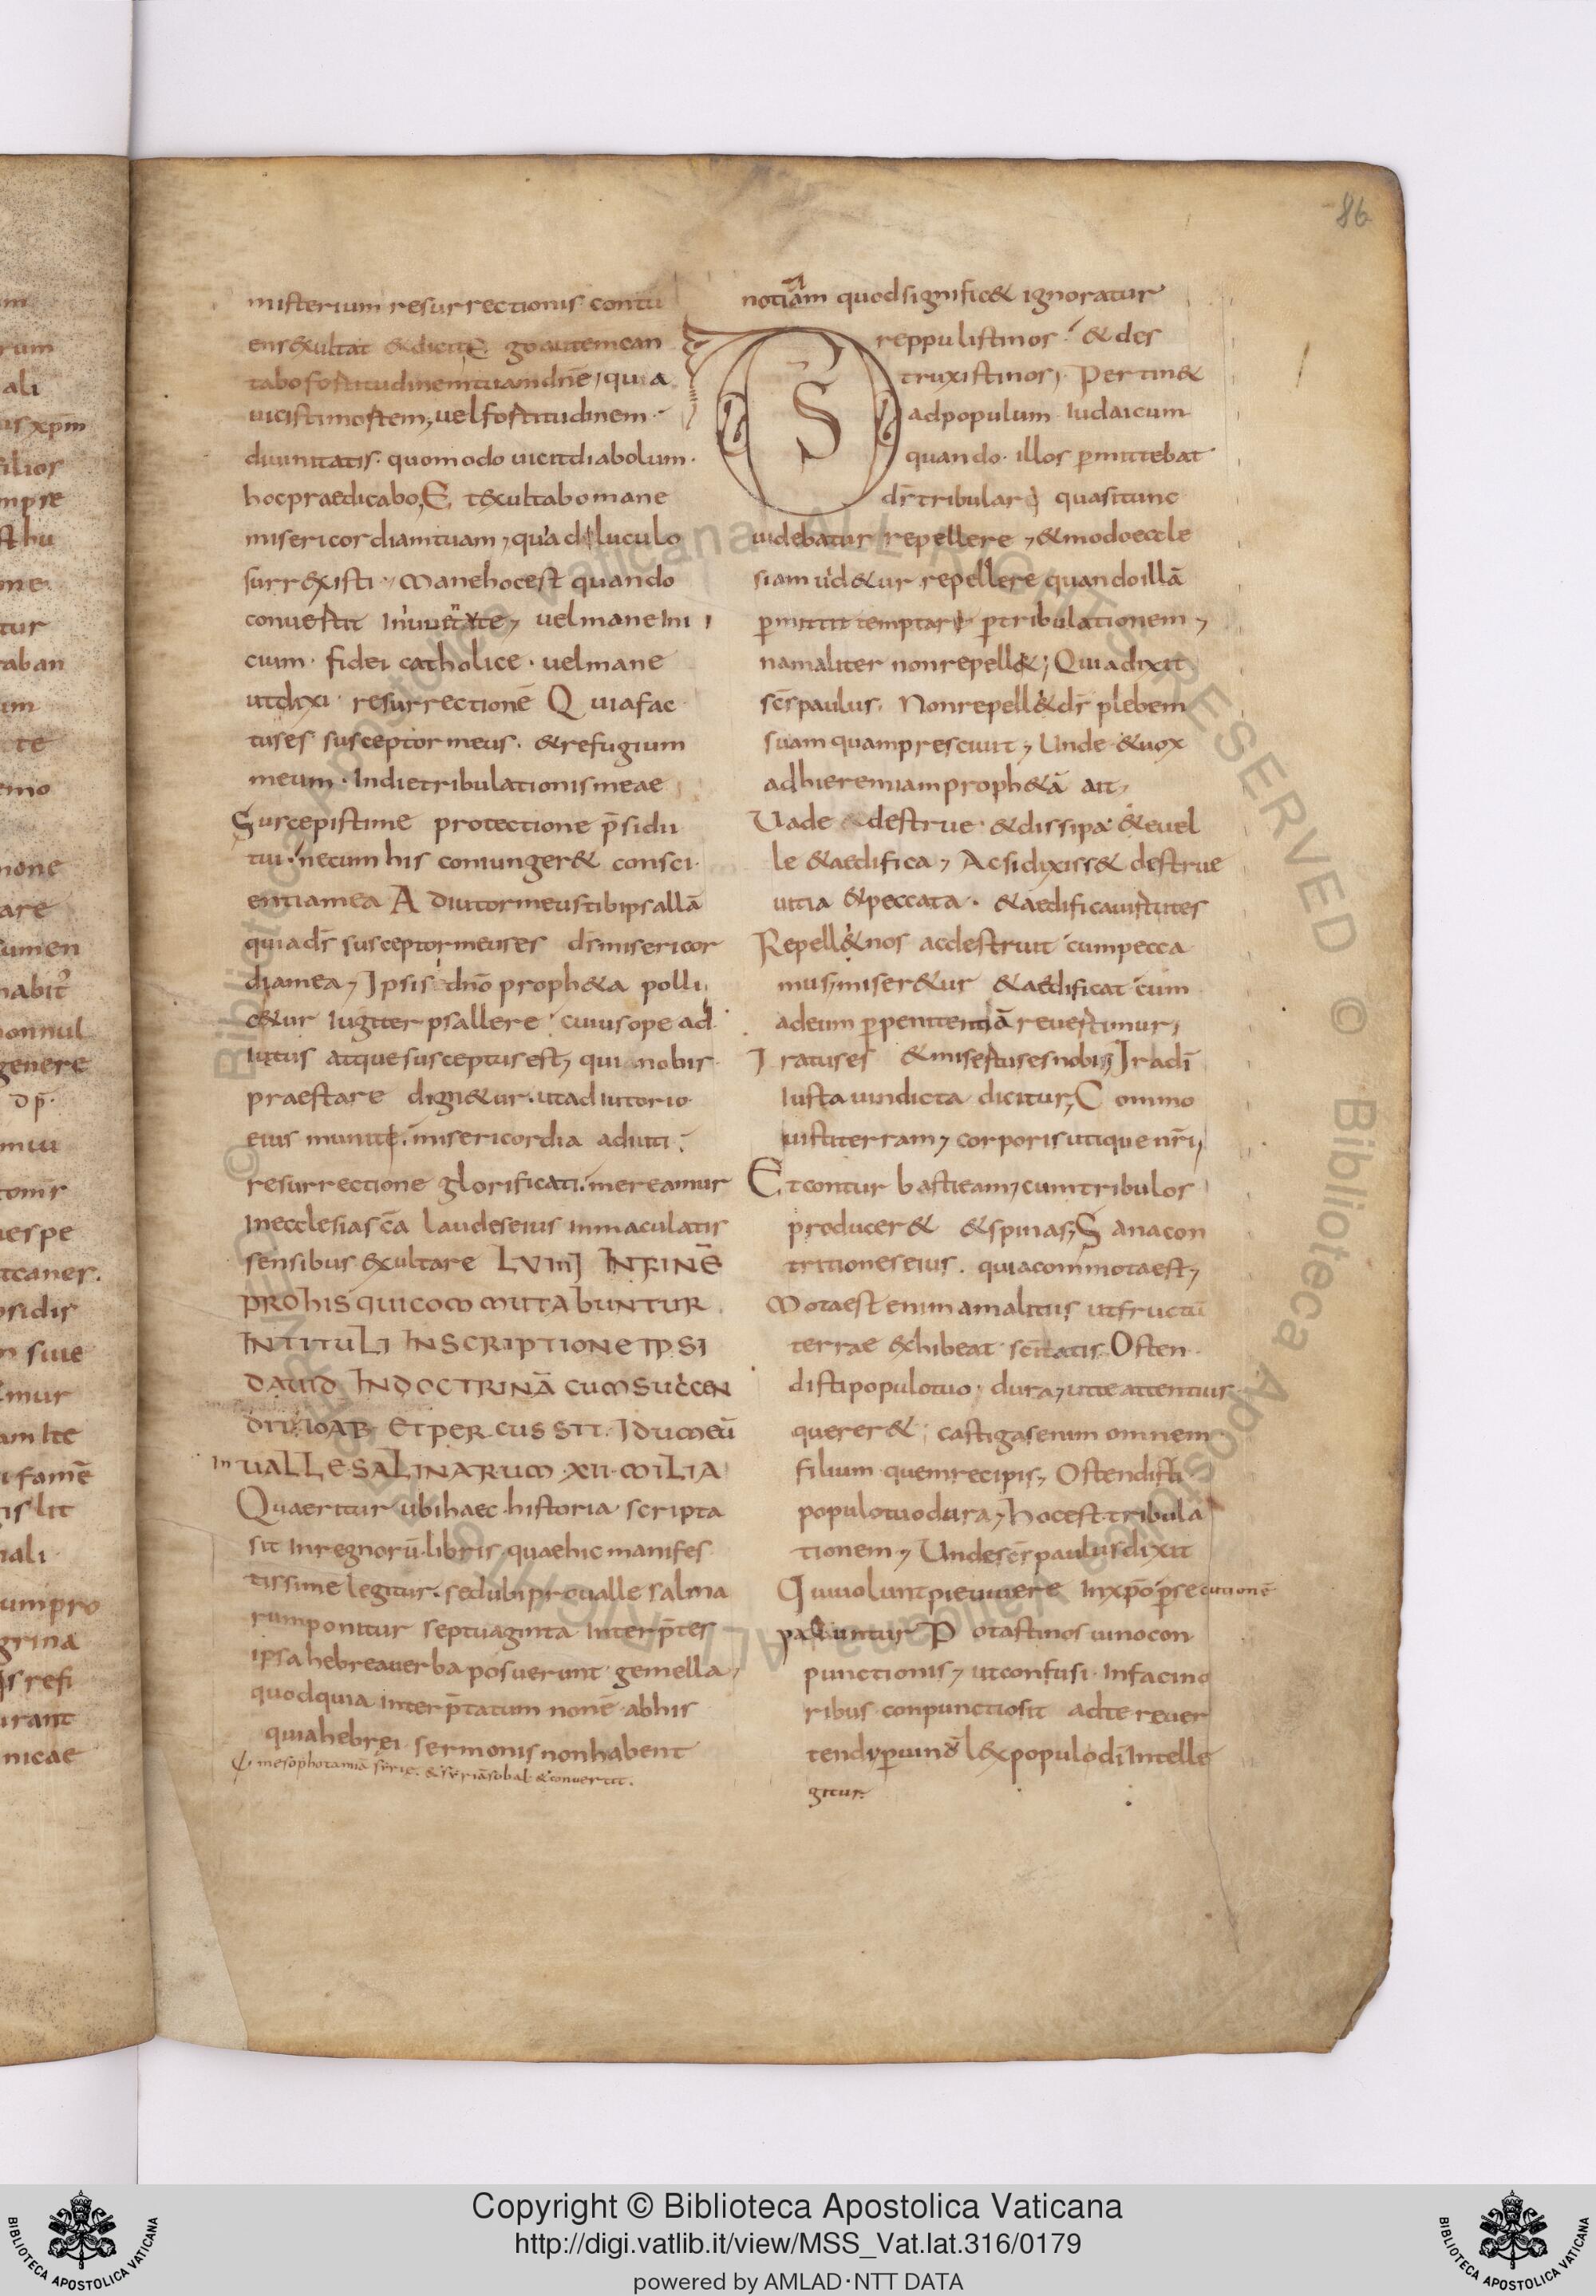 86
misterium resurrectionis contu
ens exultat & dicit E go autem can
tabo fortitudinem tuam dnē, quia
vicisti mortem, vel fortitudinem
divinitatis. quomodo vicit diabolum.
hoc praedicabo, E t exultabo mane
misericordiam tuam, quia diluculo
surrexisti. Mane hoc est quando
convertit vel mane ini
cium. fidei catholice. vel mane
ut dixi. resurrectionē Q uia fac
tus es susceptor meus. & refugium
meum. In die tribulationis meae
Suscepisti me protectione p̄sidii
tui. ne cum his coniunger& consci
entia mea A diutor meus tibi psallā
quia ds̄ susceptor meus es ds̄ misericor
dia mea, Ipsi dnō proph&a polli
c&ur iugiter psallere. cuius ope ad
iutus atque susceptus est, qui nobis
praestare dign&ur. ut adiutorio
eius muniti. misericordia adiuti.
resurrectione glorificati. mereamur
In ecclesia scā laudes eius inmaculatis
sensibus exultare LVIIII IN FINĒ
PRO HIS QUI COMMUTABUNTUR
IN TITULI INSCRIPTIONE IPSI
DAVID IN DOCTRINĀ CUM SUCCEN
DIT IOAB ET PERCUSSIT IDUMEŪ
In VALLE SALINARUM XII MILIA
Quaeritur ubi haec historia scripta
sit In regnorū libris quae hic manifes
tissime legitur. sed ubi pro valle salina
rum ponitur septuaginta interp̄tes
ipsa hebrea verba posuerunt gemella,
quod quia interp̄tatum non ē ab his
quia hebrei sermonis non habent
mesophotamiā sirie. & siriā sobal & convertit.
notiam quod signific& ignoratur
DS
reppulisti nos & des
truxisti nos, Pertin&
ad populum Iudaicum
quando illos p̄mittebat
ds̄ tribulari quasi tunc
videbatur repellere, & modo eccle
siam vid&ur repellere quando illā
p̄mittit temptari p̄ tribulationem,
nam aliter non repell&; Quia dixit
scs̄ paulus. Non repell& ds̄ plebem
suam quam prescivit, Unde & vox
ad hieremiam proph&ā ait,
Vade destrue & dissipa & evel
le & aedifica, Ac si dixiss& destrue
vitia & peccata. & aedifica virtutes
Repell& nos ac destruit cum pecca
mus, miser&ur & aedificat cum
ad eum p̄ penitentiā revertimur,
Iratus es & misertus es nobis, Ira dī
Iusta vindicta dicitur, C ommo
visti terram, corporis utique nr̄i,
Et contur basti eam, cum tribulos
producer& & spinas, S ana con
tritiones eius. quia commota est,
Mota est enim a malitiis ut fructū
terrae exhibeat scītatis Osten
disti populo tuo dura, ut te attentius
querer& castigas enim omnem
filium quem recipis, Ostendisti
populo tuo dura, hoc est tribula
tionem, Unde scs̄ paulus dixit
Qui volunt pie vivere In xpō p̄secutionē
patiuntur P otasti nos vino con
punctionis, ut confusi In facino
ribus conpunctio sit ad te rever
tendi, p̄ vinū vel ex populo dī Intelle
gitur.
Copyright © Biblioteca Apostolica Vaticana
http://digi.vatlib.it/view/MSS_Vat.lat.316/0179
powered by AMLAD·NTT DATA
BIBLIOTECA APOSTOLICA VATICANA
BIBLIOTECA APOSTOLICA VATICANA